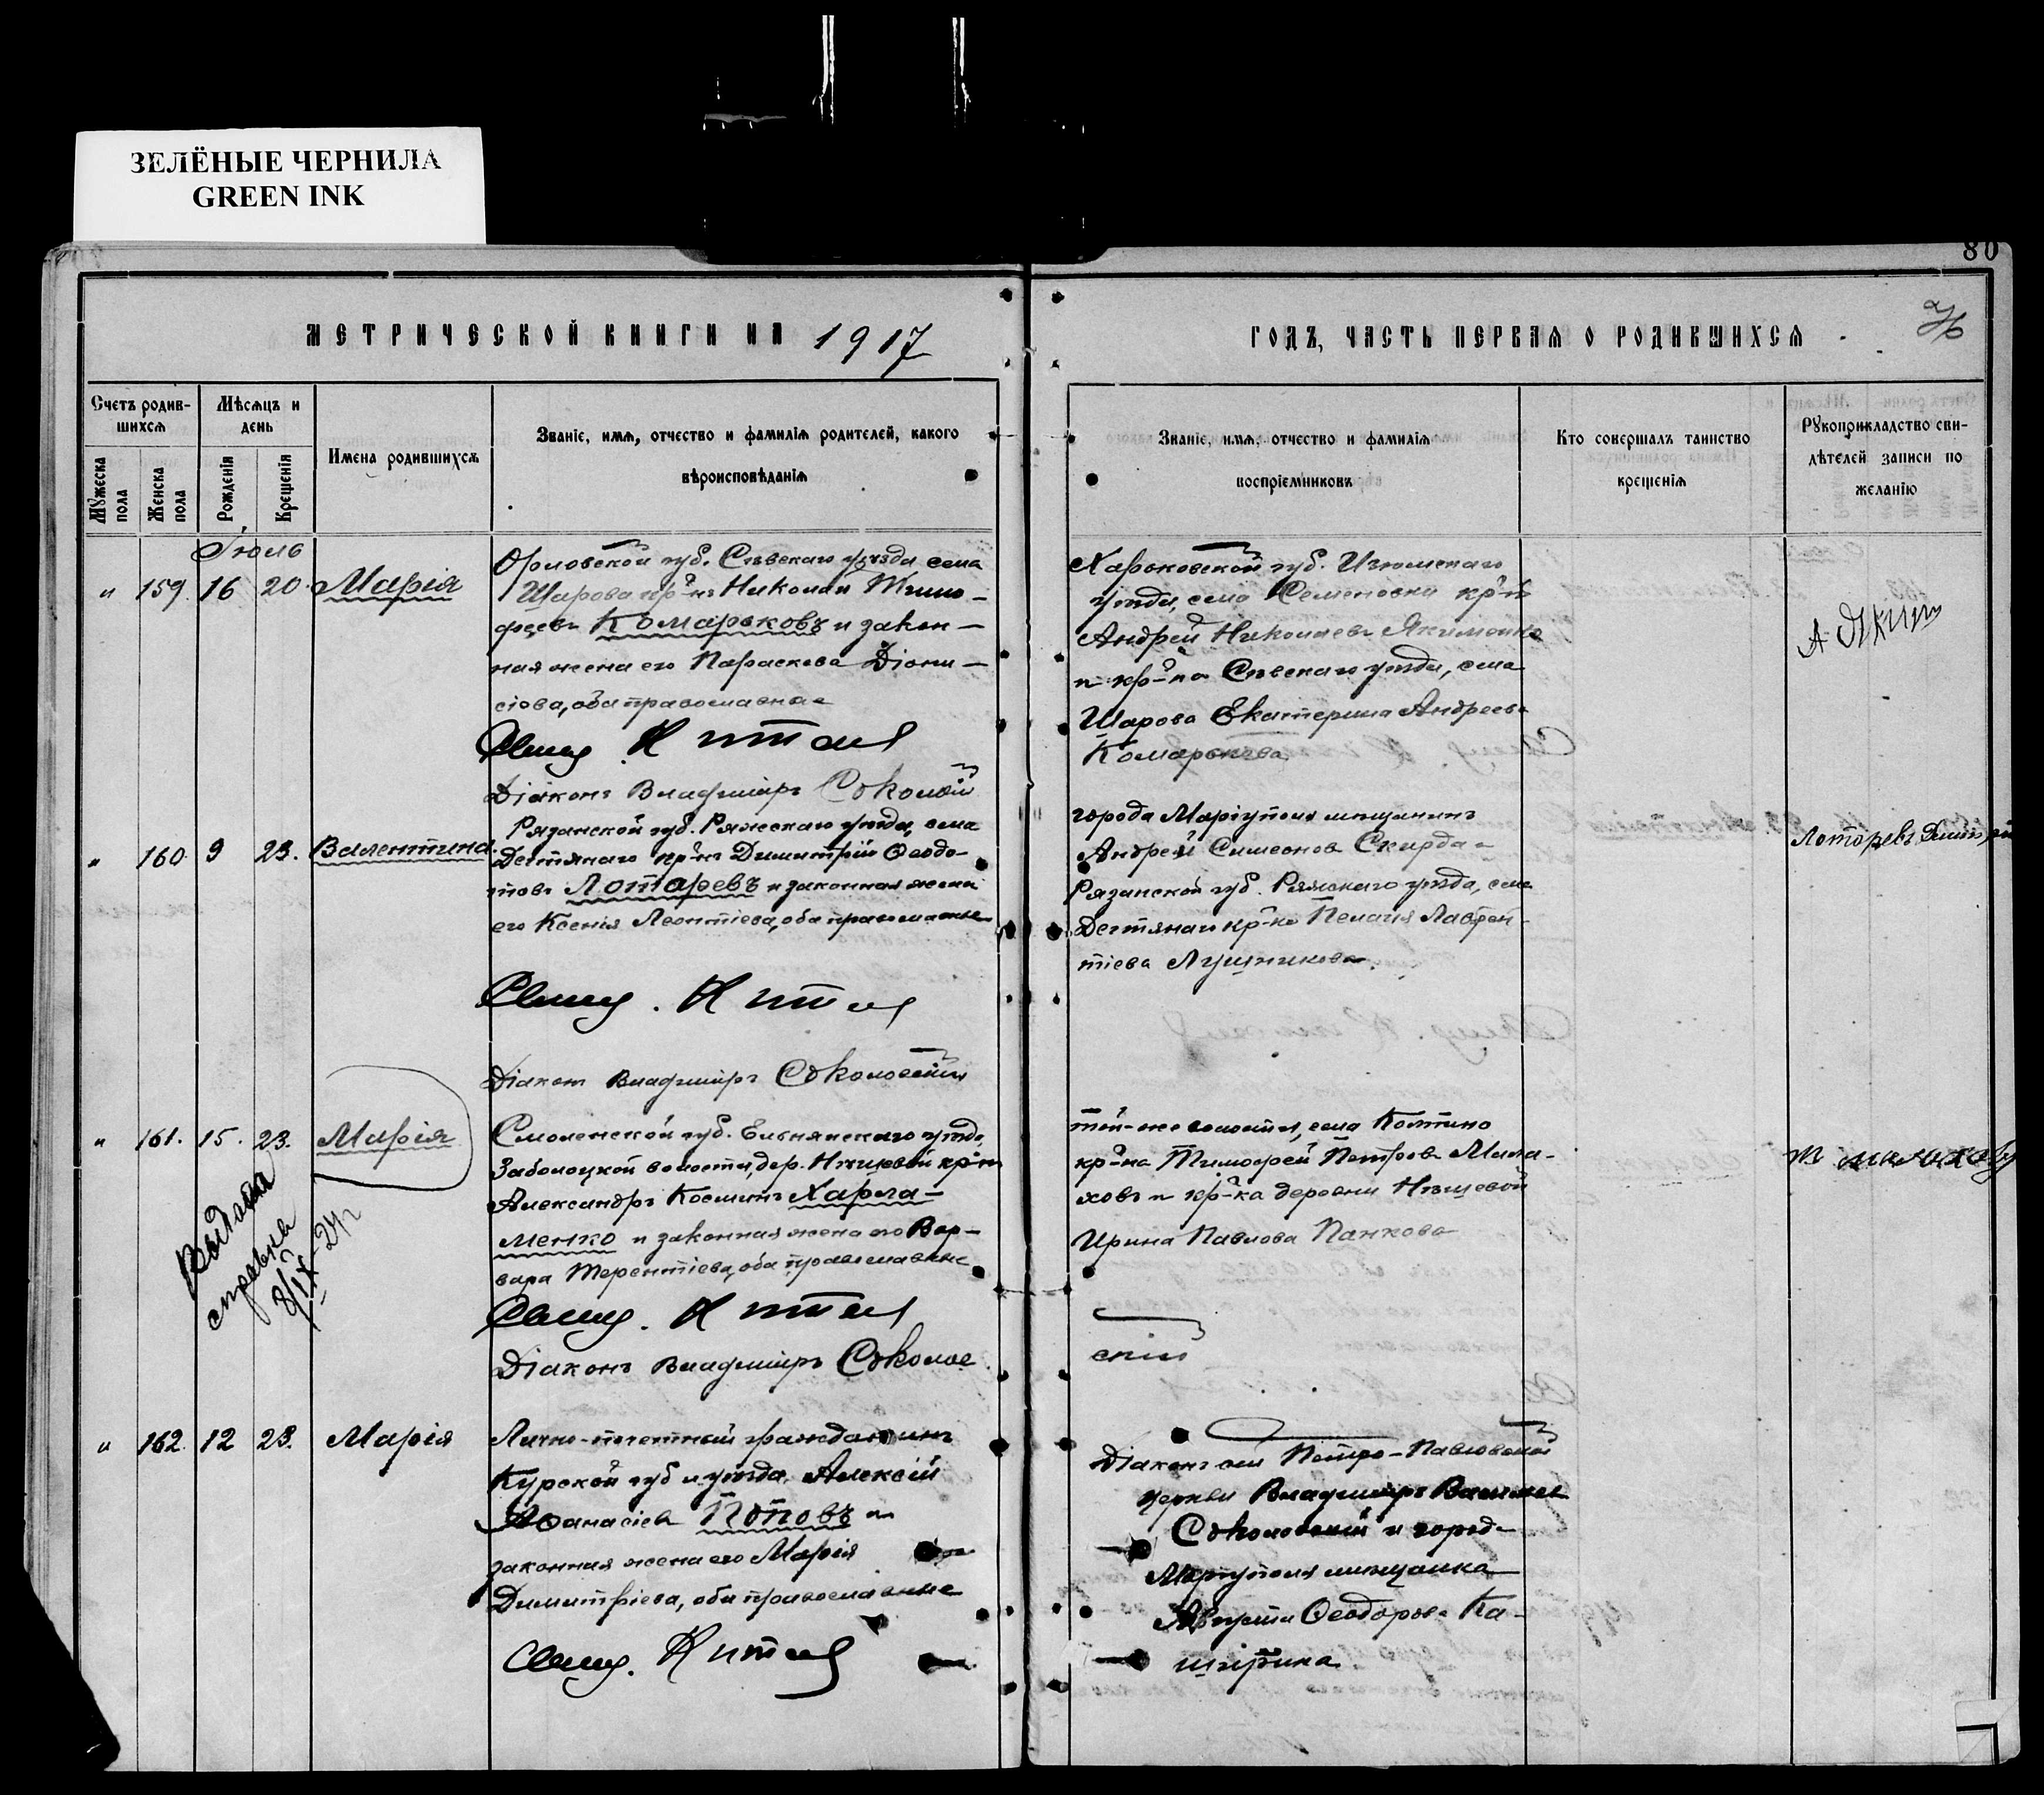 ЗЕЛЁНЫЕ ЧЕРНИЛА
GREEN INK
80
МЕТРИЧЕСКОЙ КНИГИ НА 1917
ГОДЪ, ЧАСТЬ ПЕРВАЯ О РОДИВШИХСЯ
Счетъ родив-
шихся
Мѣсяцъ и
день
Мужеска
пола
Женска
пола
Рожденія
Крещенія
Имена родившихся
Званіе, имя, отчество и фамилія родителей, какого
вѣроисповѣданія
Званіе, имя, отчество и фамилія
воспріемниковъ
Кто совершалъ таинство
крещенія
Рукоприкладство сви-
дѣтелей записи по
желанію
Іюль
" 159 16 20 Марія
Орловской губ. Сѣвскаго уѣзда села
Шарова кр-нъ Николай Тимо-
феевъ Комарьковъ и закон-
ная жена его Параскева Діони-
сіева, оба православные
Свящ.
Діаконъ Владиміръ Соколовскій
Харьковской губ. Изюмскаго
уѣзда, села Семеновки кр-нъ
Андрей Николаевъ Якименко
и кр-ка Сѣвскаго уѣзда, села
Шарова Екатерина Андреева
Комарькова
" 160 9 23. Валентина
Рязанской губ. Ряжскаго уѣзда, села
Дегтянаго кр-нъ Димитрій Ѳеодо-
товъ Лотаревъ и законная жена
его Ксенія Леонтіева, оба православные
Свящ.
Діаконъ Владиміръ Соколовскій
города Маріуполя мѣщанинъ
Андрей Симеоновъ Скирда и
Рязанской губ. Ряжскаго уѣзда, села
Дегтянаго кр-ка Пелагія Лаврен-
тіева
Лоторевъ
" 161. 15. 23. Марія
Выдана
справка
8/IX-24г
Смоленской губ. Ельнинскаго уѣзда,
волости, дер. кр-нъ
Александръ Косминъ Харла-
менко и законная жена его Вар-
вара Терентіева, оба православные
Свящ.
Діаконъ Владиміръ Соколов
скій
той-же волости, села
кр-нъ Тимофей Петровъ Мала-
ховъ и кр-ка деревни
Ирина Павлова Панкова
" 162 12 23. Марія
Лично-почетный гражданинъ
Курской губ и уѣзда Алексій
Аѳанасіевъ Поповъ и
законная жена его Марія
Димитріева, оба православные
Свящ.
Діаконъ сей Петро-Павловской
церкви Владиміръ
Соколовскій и города
Маріуполя мѣщанка
Августа Ѳеодорова Ка-
ширина